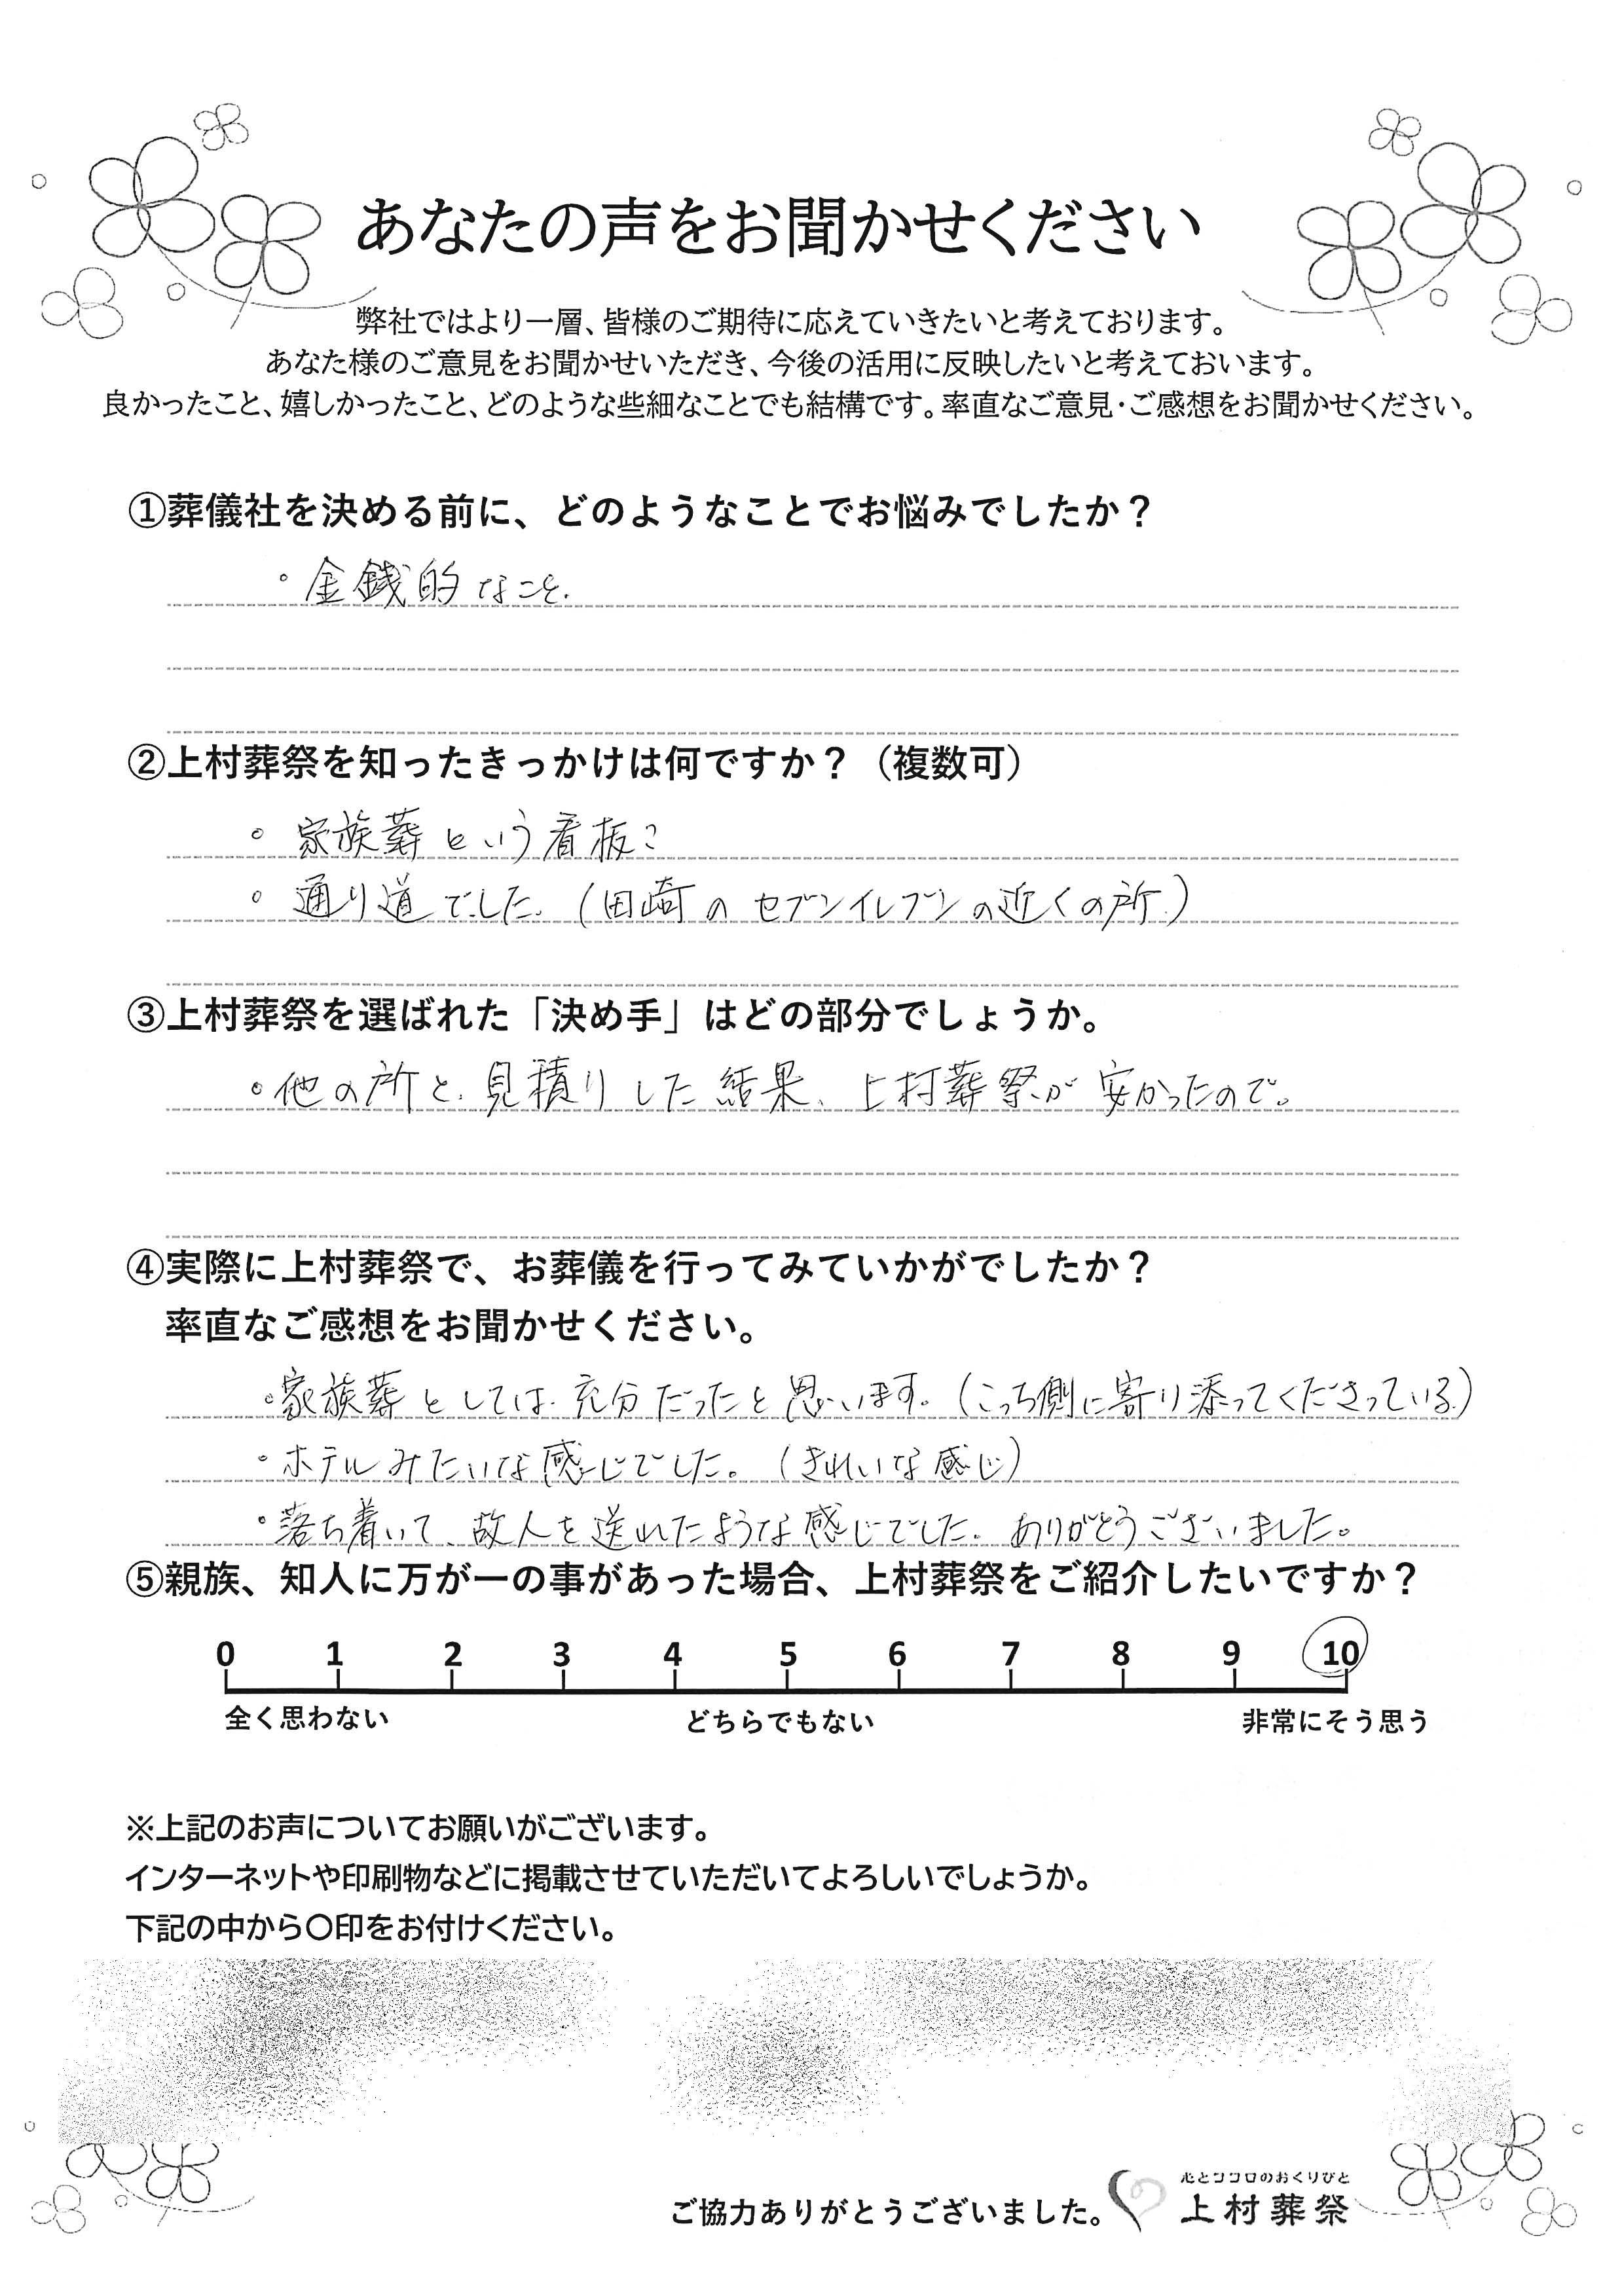 あなたの声をお聞かせください
弊社ではより一層、皆様のご期待に応えていきたいと考えております。
あなた様のご意見をお聞かせいただき、今後の活用に反映したいと考えておいます。
良かったこと、嬉しかったこと、どのような些細なことでも結構です。率直なご意見・ご感想をお聞かせください。
①葬儀社を決める前に、どのようなことでお悩みでしたか？
・金銭的なこと.
②上村葬祭を知ったきっかけは何ですか？（複数可）
・家族葬という看板こ
・通り道でした。（田崎のセブンイレブンの近くの所）
③上村葬祭を選ばれた「決め手」はどの部分でしょうか。
・他の所と、見積りした結果、上村葬祭が安かったので。
④実際に上村葬祭で、お葬儀を行ってみていかがでしたか？
率直なご感想をお聞かせください。
・家族葬としては充分だったと思います。（こっち側に寄り添ってくださっている）
・ホテルみたいな感じでした。（きれいな感じ）
・落ち着いて、故人を送れたような感じでした。ありがとうございました。
⑤親族、知人に万が一の事があった場合、上村葬祭をご紹介したいですか？
0 1 2 3 4 5 6 7 8 9 10
全く思わない どちらでもない 非常にそう思う
※上記のお声についてお願いがございます。
インターネットや印刷物などに掲載させていただいてよろしいでしょうか。
下記の中から〇印をお付けください。
心とココロのおくりびと
ご協力ありがとうございました。 上村葬祭